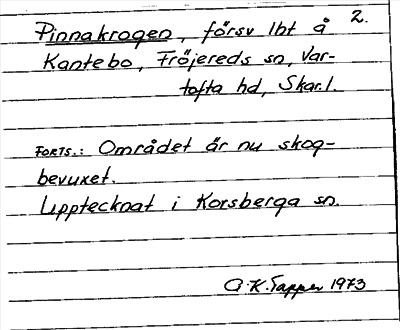 2.
Pinnakrogen, försv lht å
Kantebo, Fröjereds sn, Var-
tofta hd, Skar.l.
FORTS.: Området är nu skog-
bevuxet.
Upptecknat i Korsberga sn.
A.K. Tapper 1973